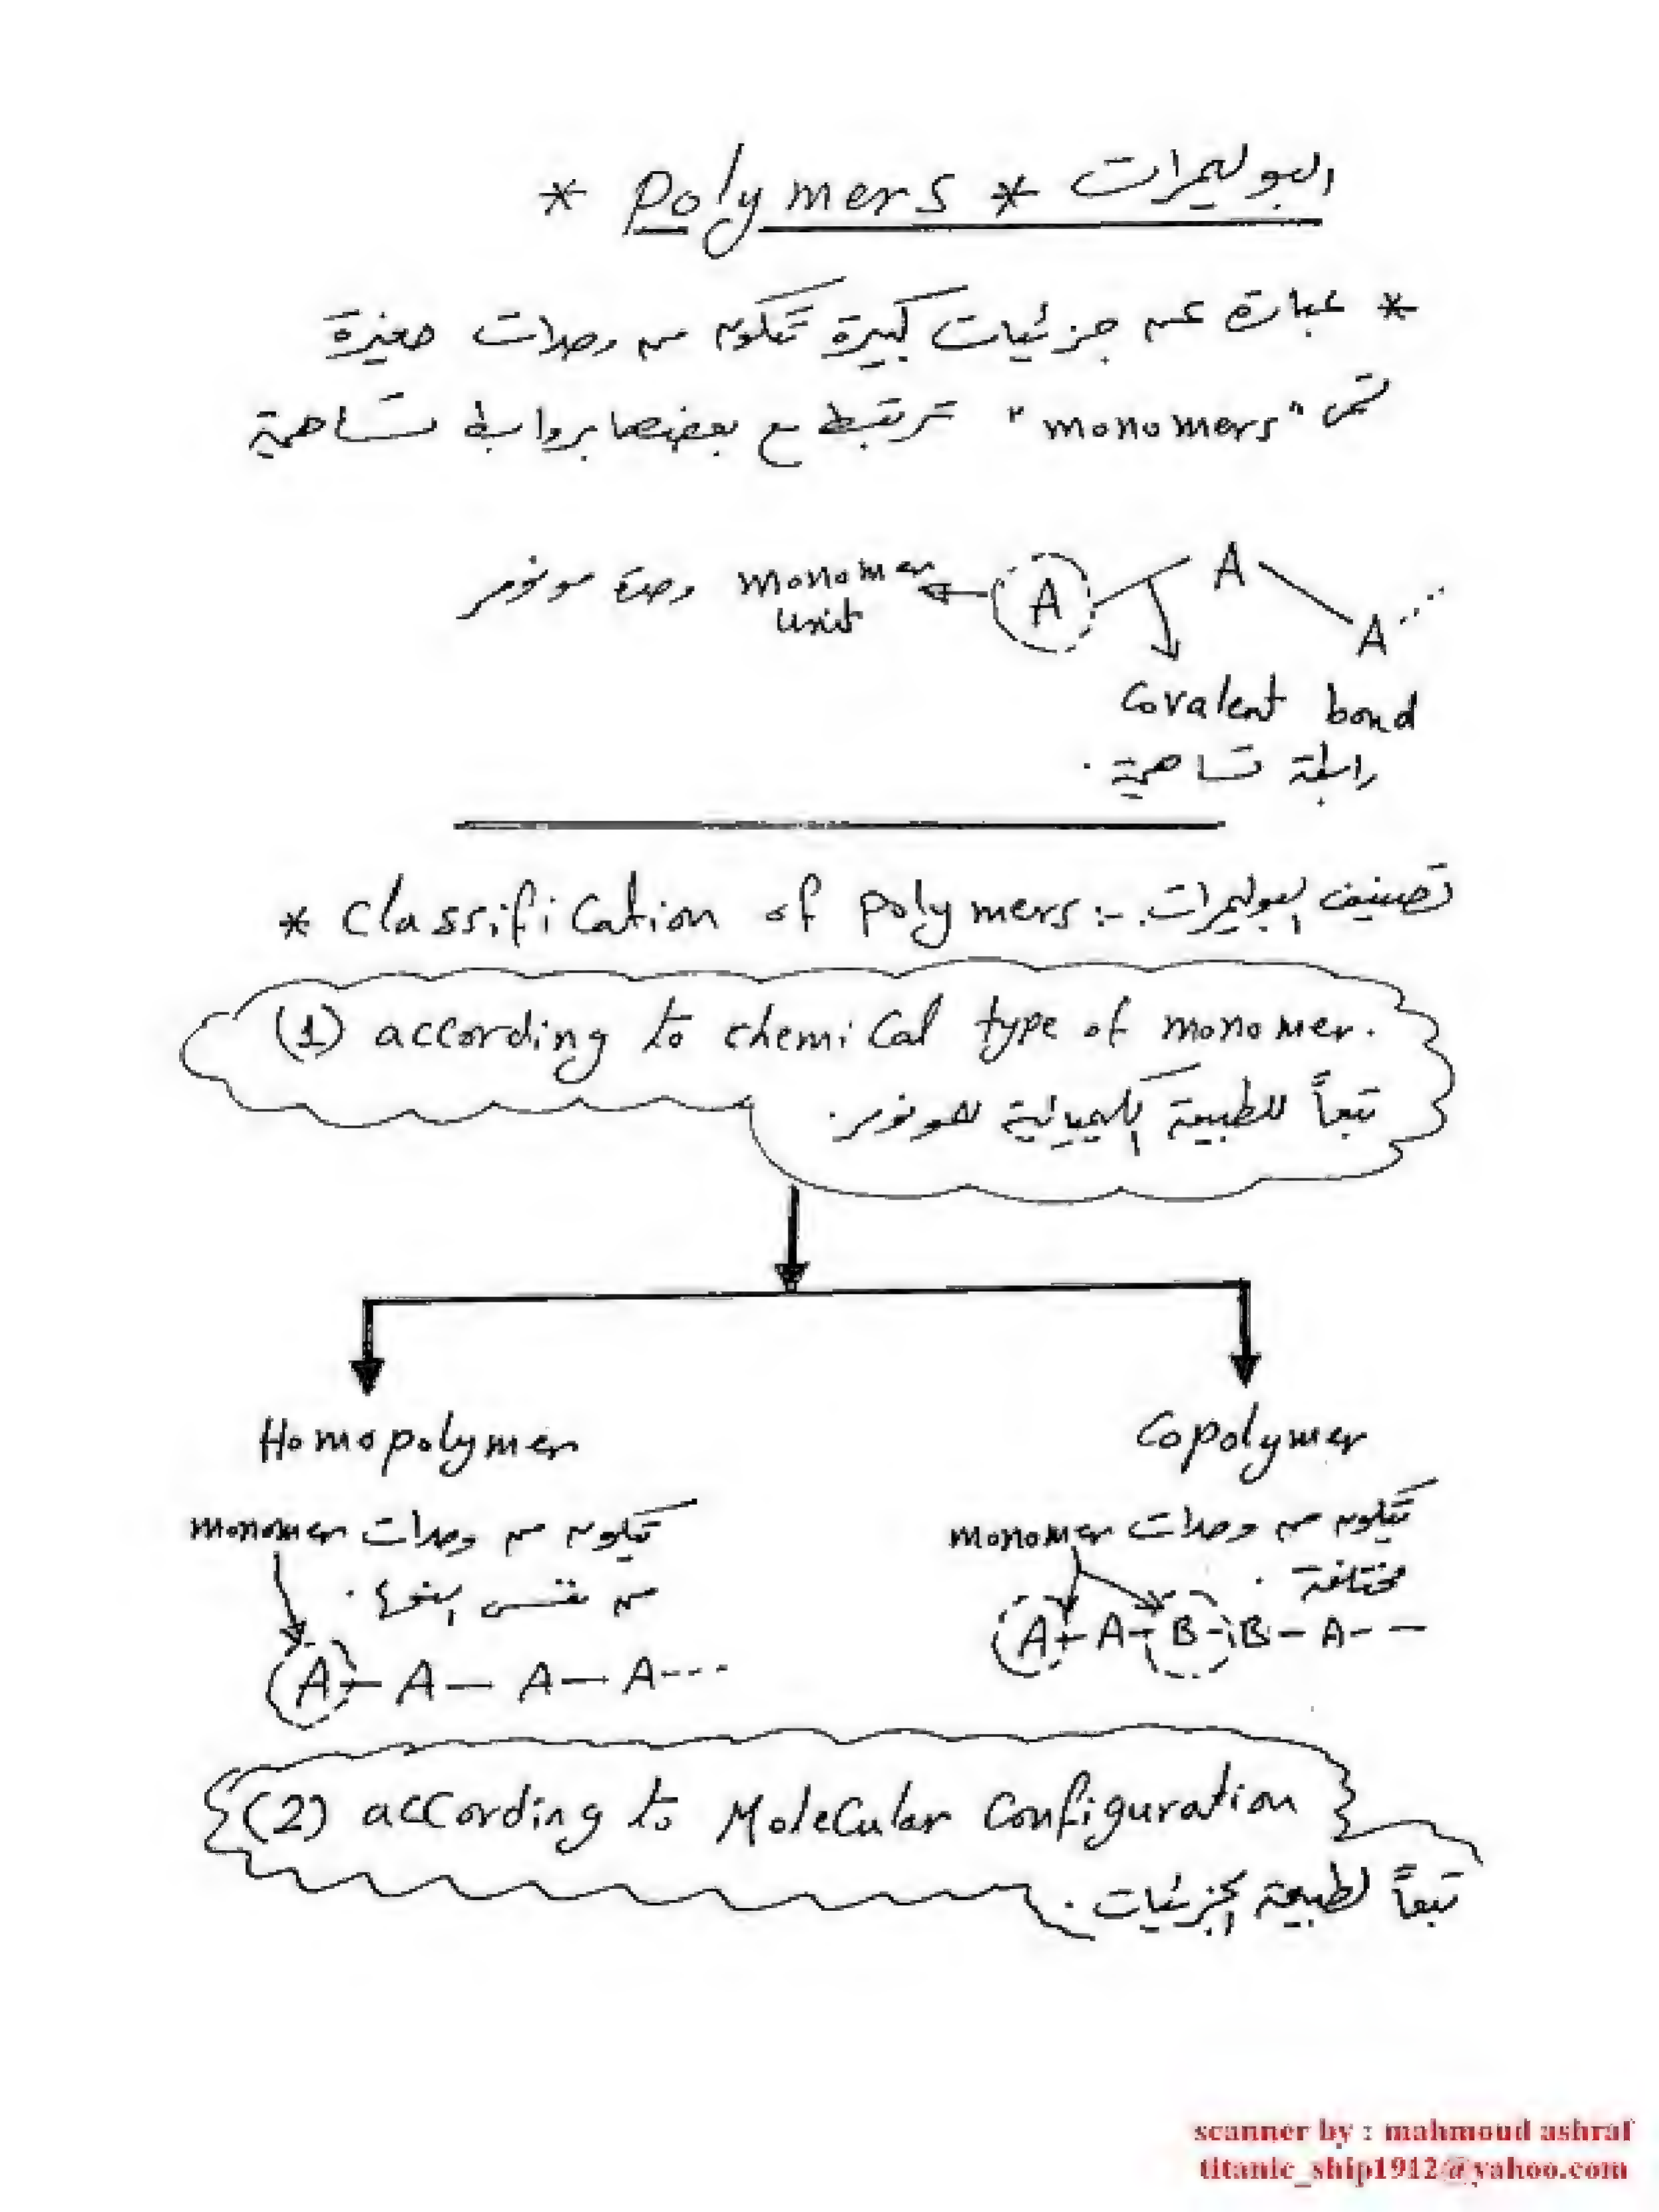 * Polymers * البوليمرات
* عبارة عن جزئيات كبيرة تتكون من وحدات صغيرة
تسمى "monomers" ترتبط مع بعضها بروابط تساهمية
وحدة مونومر monomer unit ← A — A — A ...
Covalent bond
رابطة تساهمية .
* Classification of polymers :- تصنيف البوليمرات
(1) according to chemical type of monomer.
تبعاً للطبيعة الكيميائية للمونومر .
Homopolymer
تتكون من وحدات monomer
من نفس النوع .
A — A — A — A ---
Copolymer
تتكون من وحدات monomer
مختلفة .
A - A - B - B - A - -
(2) according to Molecular Configuration
تبعاً لطبيعة الجزئيات .
scanner by : mahmoud ashraf
titanic_ship1912@yahoo.com